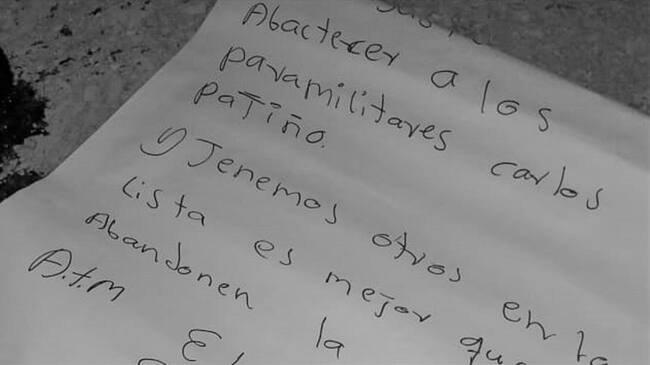 Abactecer a los
paramilitares carlos
patiño.
y Jenemos otros en la
lista es mejor que
Abandonen la
A.t.m
El